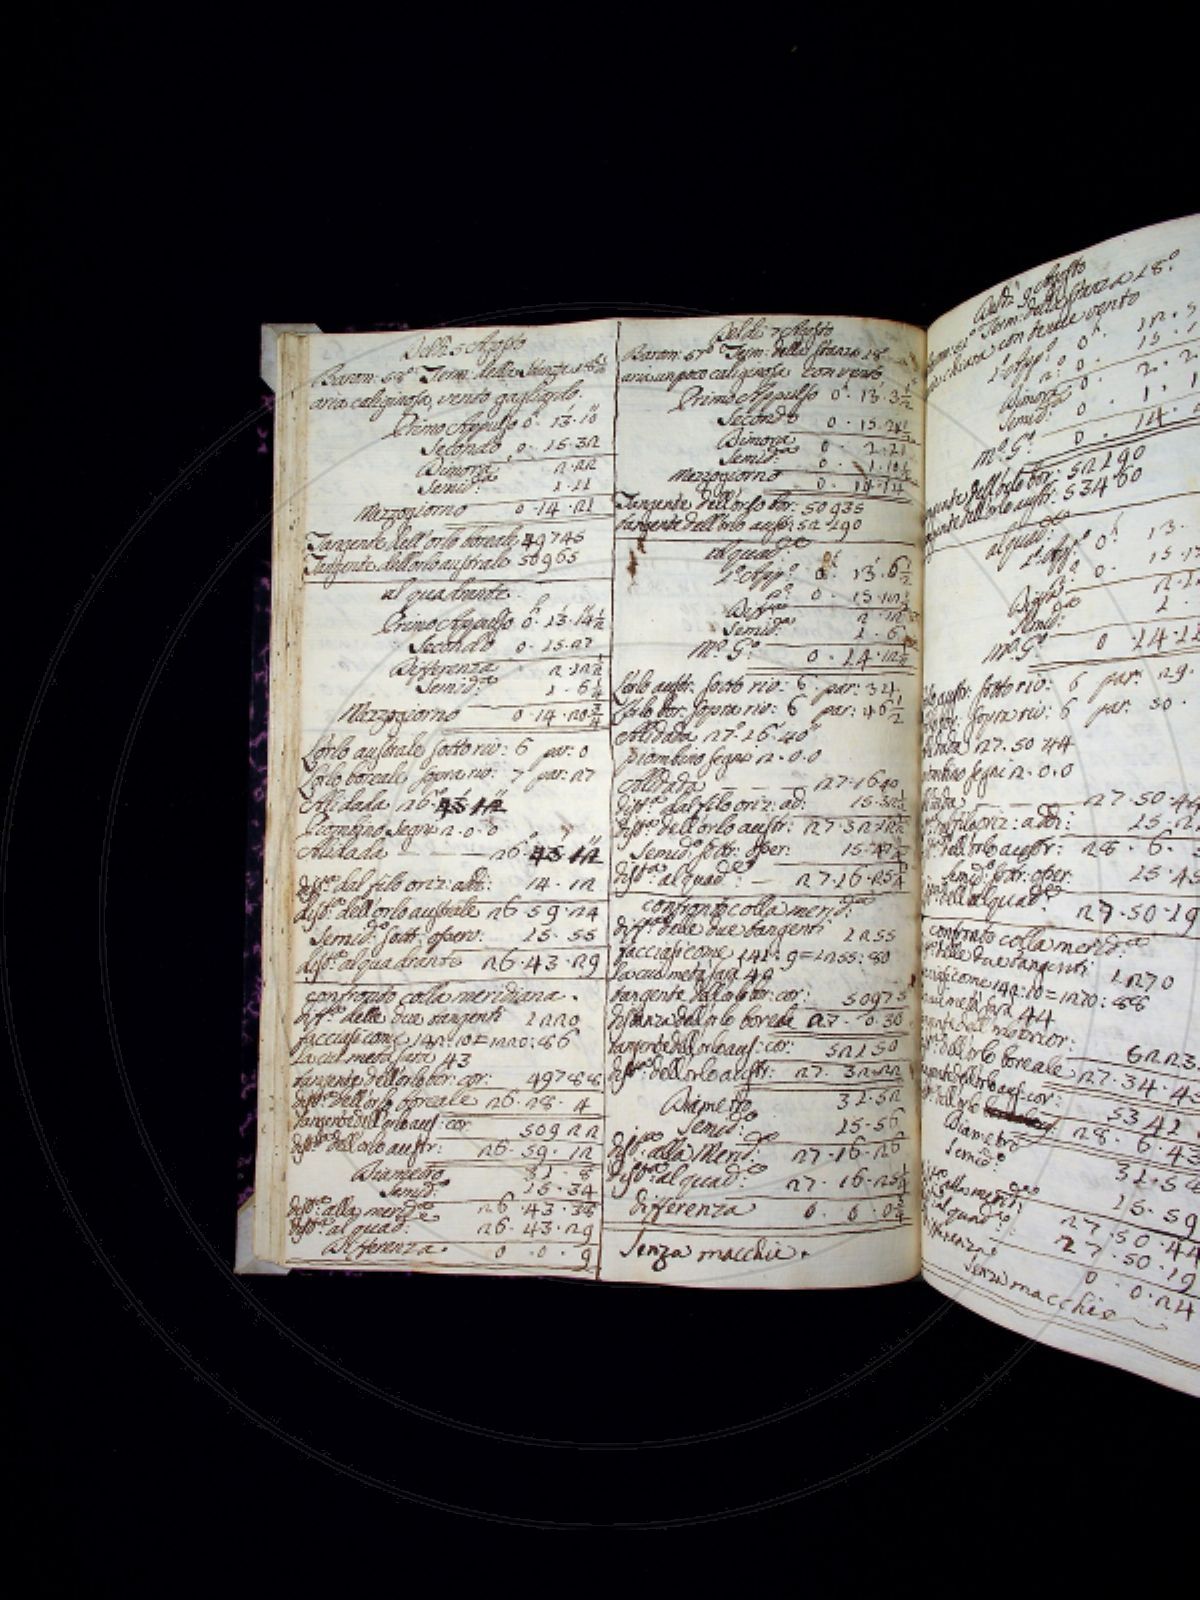 Delli 5 Agosto
Barom: 58° Term: della Stanza 18°
aria caliginosa, vento gagliardo.
Primo Appulso 0. 13. 10
Secondo 0. 15. 32
Dimora 2. 22
Semid:a 1. 11
Mezzogiorno 0. 14. 21
Tangente dell'orlo boreale 49745
Tangente dell'orlo australe 50965
al quadrante.
Primo Appulso 0. 13. 14 1/2
Secondo 0. 15. 27
Differenza 2. 12 1/2
Semid:a 1. 6 1/4
Mezzogiorno 0. 14. 20 3/4
L'orlo australe sotto riv: 6 par: 0
L'orlo boreale sopra riv: 7 par: 27
Alidada 26° 43 12
Piombino segni 2. 0. 0
Alidada 26. 43. 12
dist:a dal filo oriz: add: 14. 12
dist:a dell'orlo australe 26. 59. 24
Semid:o sott: osserv: 15. 55
dist:a al quadrante 26. 43. 29
confronto colla meridiana.
diff:a delle due tangenti 1220
facciasi come 142. 10 = 1220: 86
la cui metà sarà 43
tangente dell'orlo bor: cor: 49788
dist:a dell'orlo boreale 26. 28. 4
tangente dell'orlo aust: cor: 50922
dist:a dell'orlo austr: 26. 59. 12
Diametro 31. 8
Semid:o 15. 34
dist:a alla merid:a 26. 43. 38
dist:a al quad:e 26. 43. 29
Differenza. 0. 0. 9
Del dì 7 Agosto
Barom: 57° Term: della stanza 18°
aria un poco caliginosa con vento
Primo Appulso 0. 13. 3 1/2
Secondo 0. 15. 24 1/2
Dimora 0 2. 21
Semid:a 0. 1. 10 1/2
Mezzogiorno 0. 14. 14
Tangente dell'orlo bor: 50935
tangente dell'orlo austr: 52190
al quad:e
1° App:o 0. 13. 6 1/2
2:o 0. 15.
Diff:za 2. 12
Semid:a 1. 6
M:o G:o 0. 14. 12 1/2
L'orlo austr: sotto riv: 6 par: 34.
L'orlo bor: sopra riv: 6 par: 46 1/2
Alidada 27° 16' 40"
piombino segni 2. 0. 0
Alidada 27. 16 40
dist:a dal filo oriz: ad: 15. 32 1/2
dist:a dell'orlo austr: 27. 32 12 1/2
Semid:o sott: oser: 15. 47
dist:a al quad:e 27. 16. 25 1/4
confronto colla merid:a
diff:a delle due tangenti 1255
facciasi come 141. 9 = 1255: 80
la cui metà sarà
tangente dell'orlo bor: cor: 50975
distanza dell'orlo boreale 27. 0. 30
tangente dell'orlo aus: cor: 52150
dist:a dell'orlo austr: 27. 32. 22
Diametro 31. 52
Semid:o 15. 56
dist:a alla Merid:a 27. 16. 26
dist:a al quad:e 27. 16. 25 1/4
differenza 0. 0. 0 3/4
Senza macchie.
Del dì 9 Agosto
Term: della stanza 18°.
chiara con tenue vento
1° App:o 0
2:o 0. 15
Dimora 0. 2.
Semid:a 0. 1.
M:o G:o 0. 14.
tangente dell'orlo bor: 52190
tangente dell'orlo austr: 53460
al quad:e
1° App:o 0. 13.
2:o 0. 15.
Semid:a 1.
M:o G:o 0 14.
L'orlo austr: sotto riv: 6 par: 29.
sopra riv: 6 par: 30.
Alidada 27. 50 44
piombino segni 2. 0. 0
27. 50. 44
dal filo oriz: add: 15.
dell'orlo austr: 28. 6.
Semid:o sott: oser: 15. 45
al quad:e 27. 50. 19
confronto colla merid:a
delle due tangenti 1270
facciasi come 142. 10 = 1270: 88
la cui metà sarà 44
dell'orlo boreale 27. 34. 4
28. 6. 43
Diametro 31. 54
Semid:o 15. 59
alla merid: 27. 50. 44
al quad:e 27. 50. 19
differenza 0. 0. 24
Senza macchie